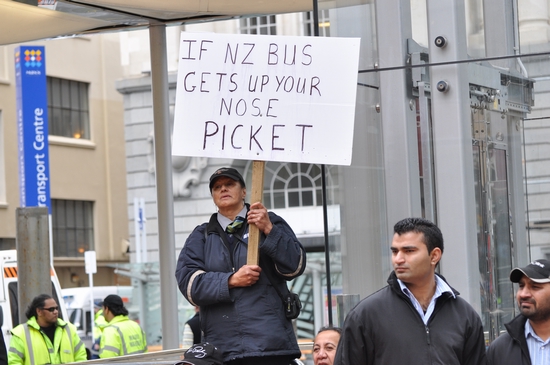 IF NZ BUS
GETS UP YOUR
NOSE
PICKET
Transport Centre